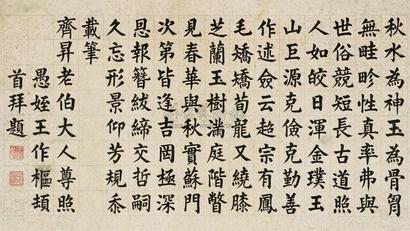 秋水為神玉為骨胷
無畦畛性真率弗與
世俗競短長古道照
人如皎日渾金璞玉
山巨源克儉克勤善
作述僉云超宗有鳳
毛矯矯荀龍又繞膝
芝蘭玉樹滿庭階瞥
見春華與秋實蘇門
次第皆逢吉罔極深
恩報簪紱締交哲嗣
久忘形景仰芳規忝
載筆
齊昇老伯大人尊照
愚姪王作樞頓
首拜題